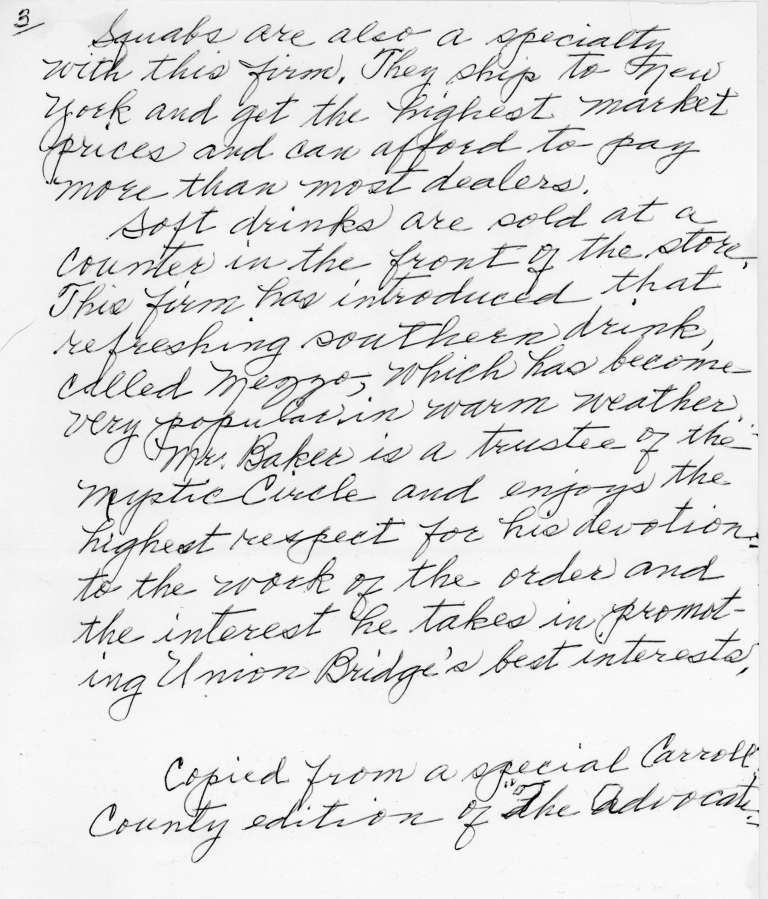 3
Squabs are also a specialty
with this firm. They ship to New
York and get the highest market
prices and can afford to pay
more than most dealers.
Soft drinks are sold at a
counter in the front of the store.
This firm has introduced that
refreshing southern drink,
called Mezzo, which has become
very popular in warm weather.
Mr. Baker is a trustee of the
Mystic Circle and enjoys the
highest respect for his devotion
to the work of the order and
the interest he takes in promot-
ing Union Bridge's best interests.
Copied from a special Carroll
County edition of "The Advocate